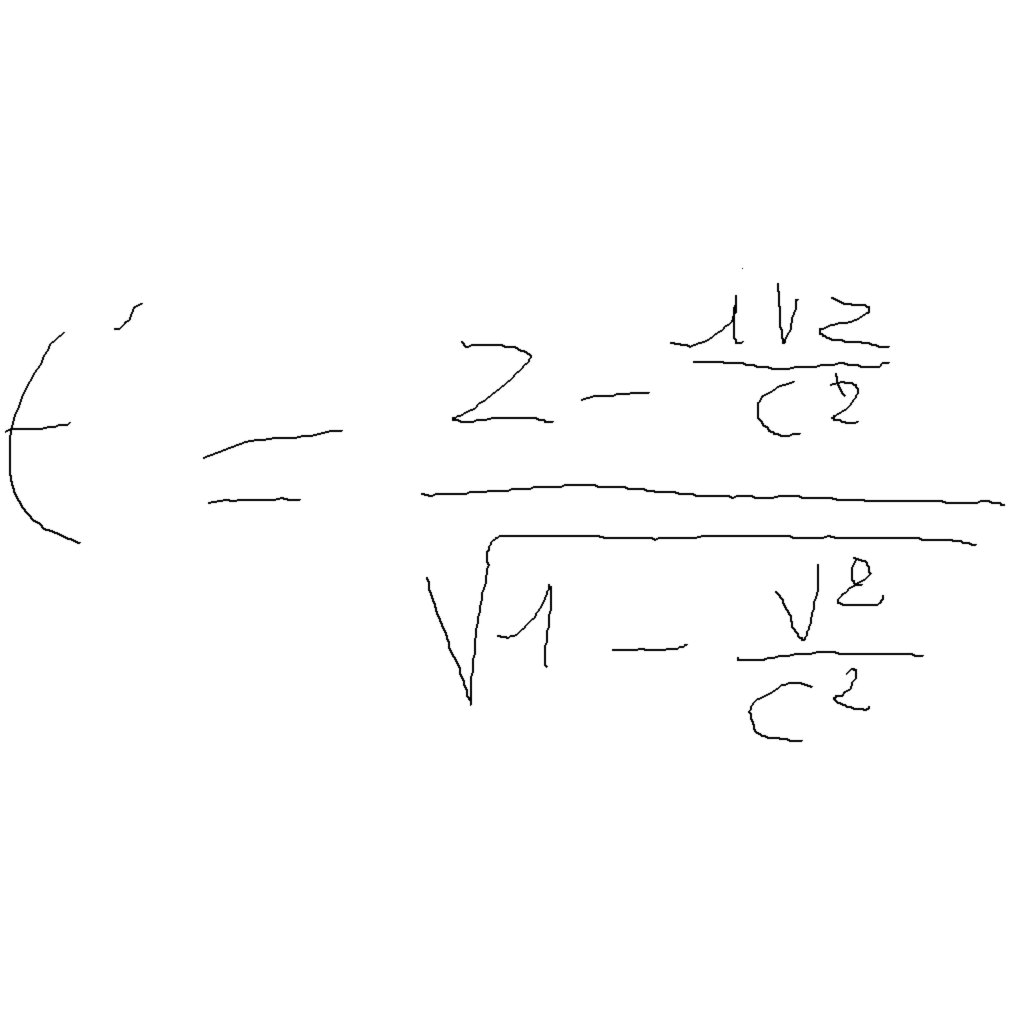 t' = (2 - 1vz/c²) / √(1 - v²/c²)